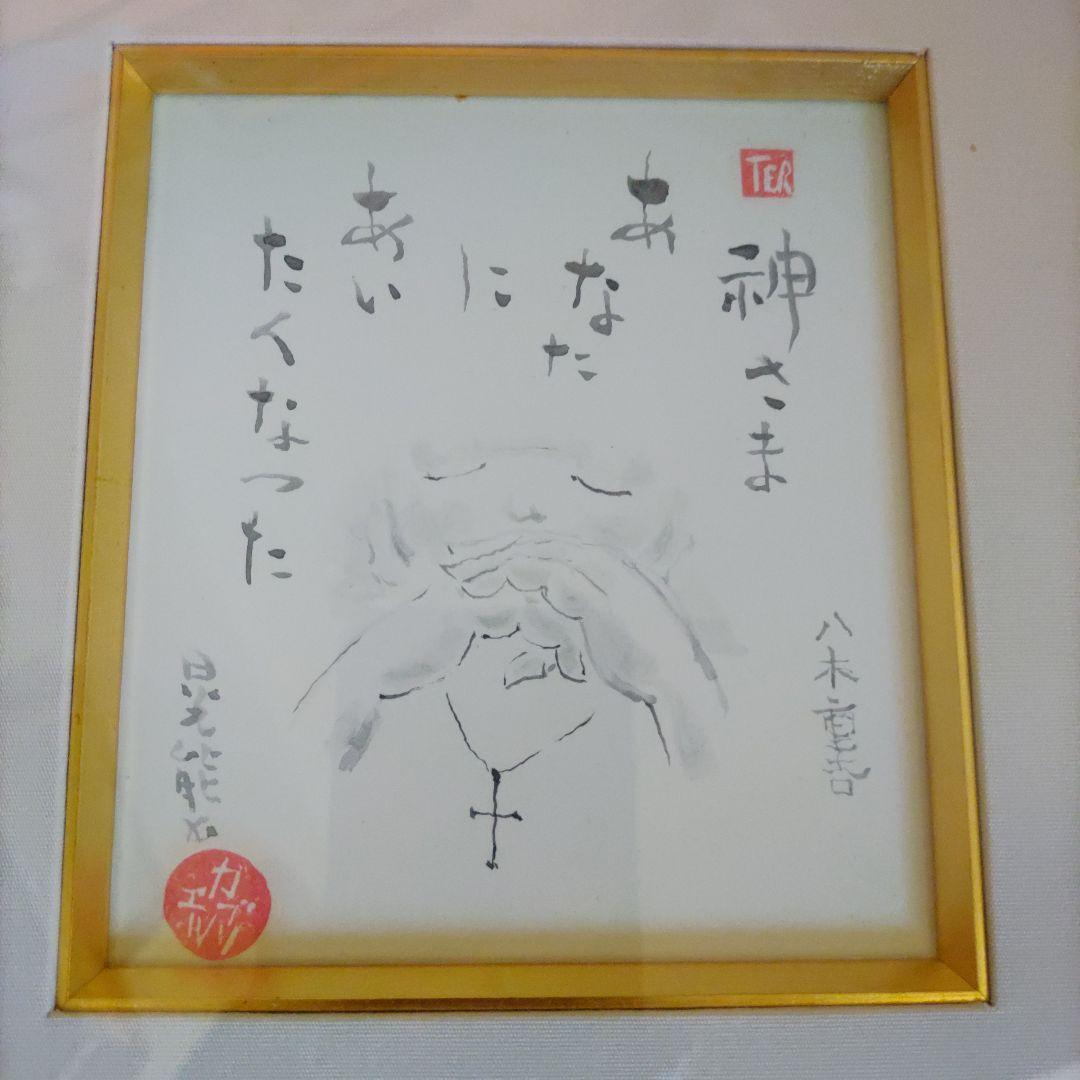 TER
神さま
あなた
に
あい
たくなった
八木重吉
ガブリエル